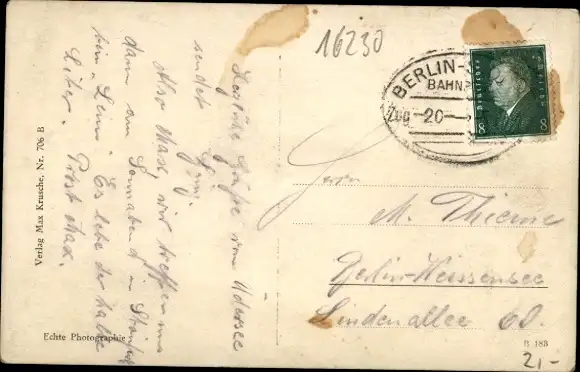 16230
BERLIN-
BAHNP
Zug 20
Deutsches Reich
8 8
Herzliche Grüße vom Udersee
sendet
Also Max wir treffen uns
dann am Sonnabend in
beim "Lenn". Es lebe der halbe
Liter. Prost Max.
Herrn
M. Thieme
Berlin-Weissensee
Lindenallee
Verlag Max Krusche, Nr. 706 B
Echte Photographie
B 188
21,-